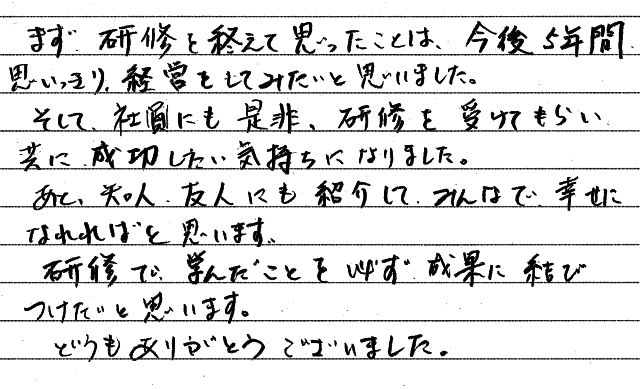 まず 研修を終えて思ったことは、今後5年間
思いっきり、経営をしてみたいと思いました。
そして、社員にも是非、研修を受けてもらい
共に成功したい気持ちになりました。
あと、知人、友人にも紹介して、みんなで幸せに
なれればと思います。
研修で、学んだことを必ず成果に結び
つけたいと思います。
どうもありがとうございました。